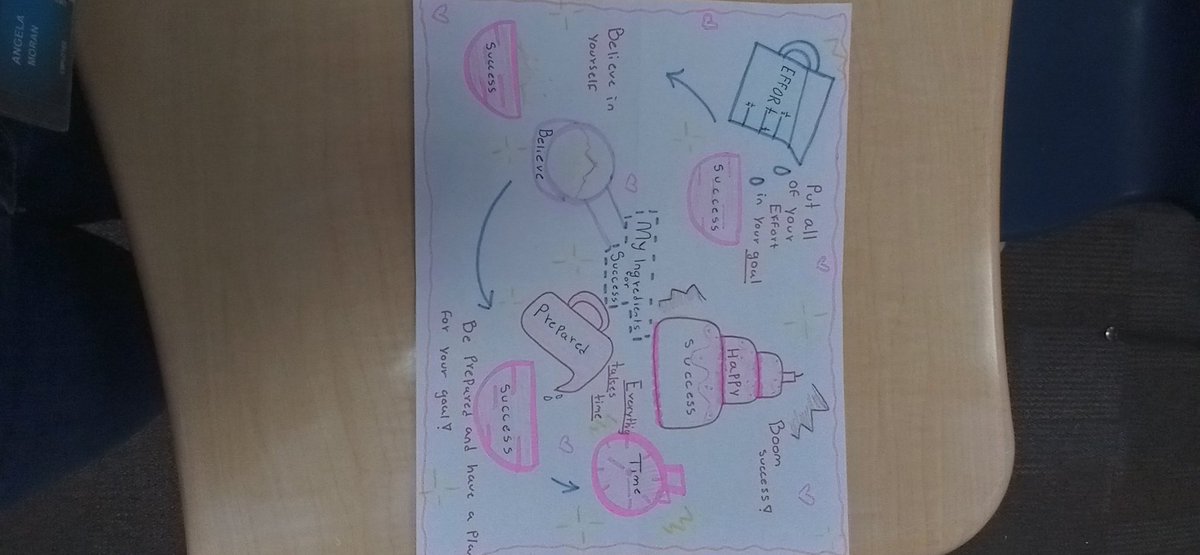 EFFORt
Put all
of your
Effort
in your goal
Success
Believe in
yourself
Success
Believe
My Ingredients
for
Success!
Prepared
Be Prepared and have a Pla
for your goal!
Success
Everythig
takes
time
Time
Happy
Success
Boom
success!
ANGELA
MORAN